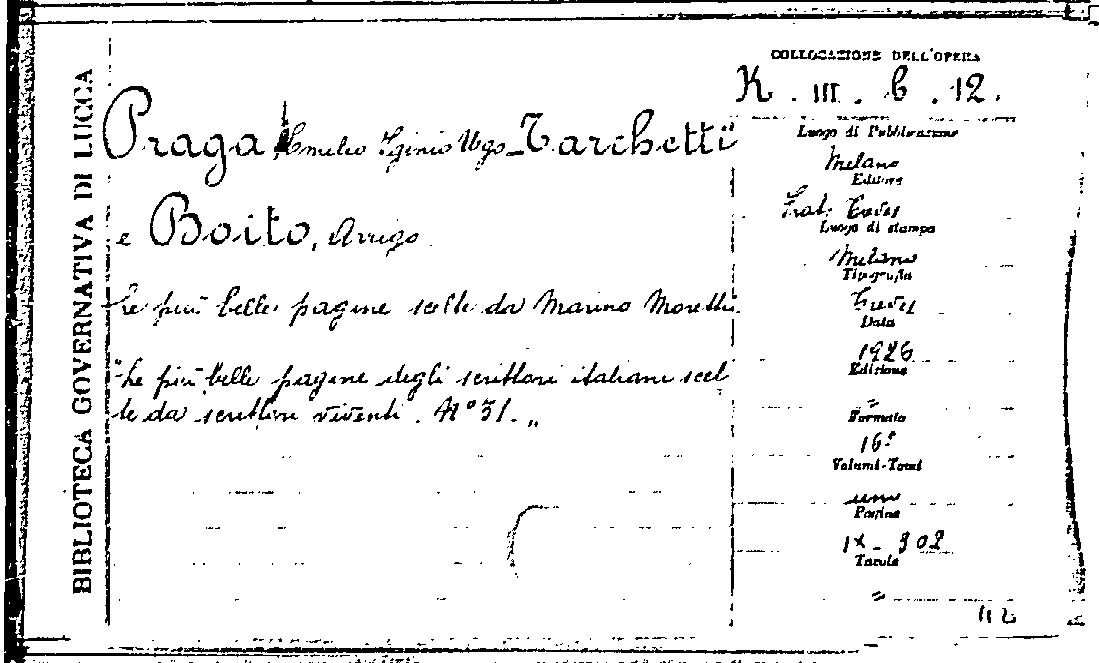 BIBLIOTECA GOVERNATIVA DI LUCCA
Praga Emilio Iginio Ugo Tarchetti
e Boito, Arrigo
Le più belle pagine scelte da Marino Moretti.
"Le più belle pagine degli scrittori italiani scel
te da scrittori viventi. N° 31."
COLLOCAZIONE DELL'OPERA
K. III. 6. 12.
Luogo di Pubblicazione
Milano
Editore
Frat. Treves
Luogo di stampa
Milano
Tipografia
Treves
Data
1926
Edizione
"
Formato
16°
Volumi-Tomi
uno
Pagine
IX - 302
Tavole
"